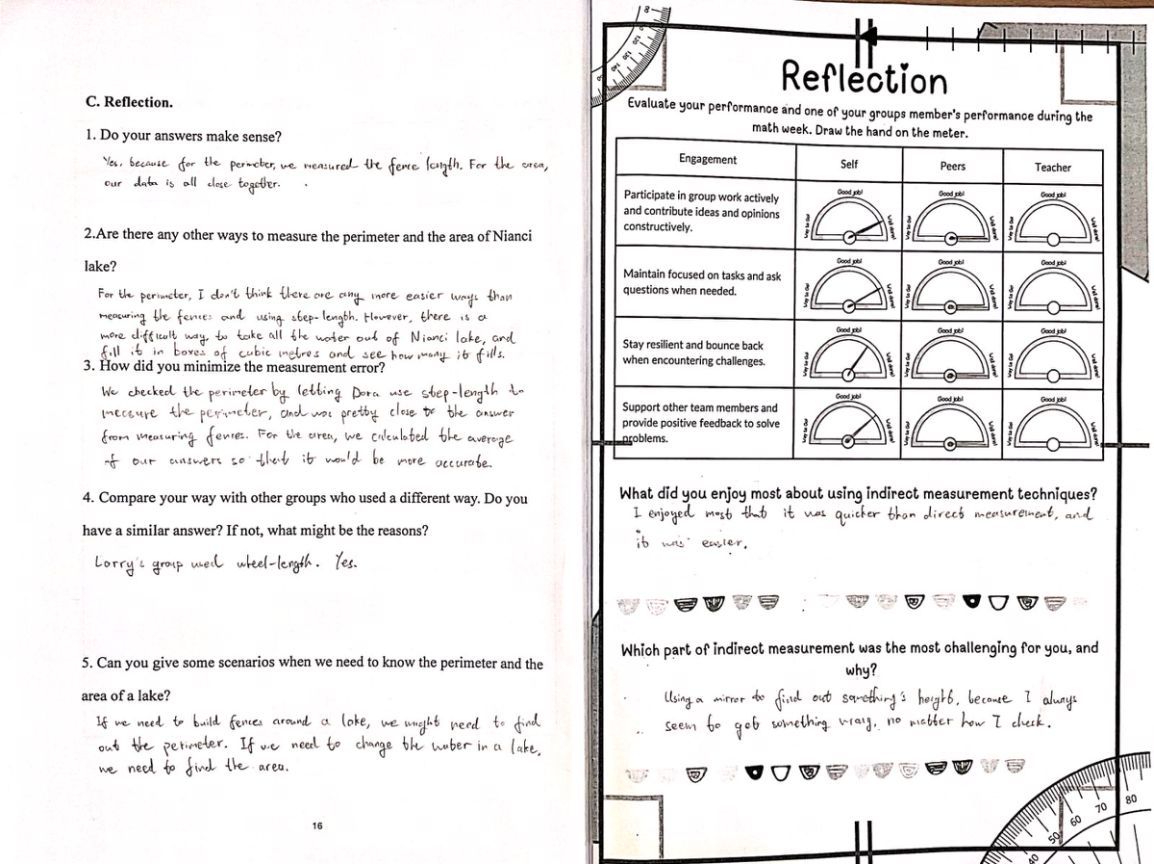 C. Reflection.
1. Do your answers make sense?
Yes, because for the perimeter, we measured the fence length. For the area,
our data is all close together.
2.Are there any other ways to measure the perimeter and the area of Nianci
lake?
For the perimeter, I don't think there are any more easier ways than
measuring the fences and using step-length. However, there is a
more difficult way to take all the water out of Nianci lake, and
fill it in boxes of cubic metres and see how many it fills.
3. How did you minimize the measurement error?
We checked the perimeter by letting Dora use step-length to
measure the perimeter, and was pretty close to the answer
from measuring fences. For the area, we calculated the average
of our answers so that it would be more accurate.
4. Compare your way with other groups who used a different way. Do you
have a similar answer? If not, what might be the reasons?
Larry's group used wheel-length. Yes.
5. Can you give some scenarios when we need to know the perimeter and the
area of a lake?
If we need to build fences around a lake, we might need to find
out the perimeter. If we need to change the water in a lake,
we need to find the area.
16
Reflection
Evaluate your performance and one of your groups member's performance during the
math week. Draw the hand on the meter.
Engagement Self Peers Teacher
Participate in group work actively
and contribute ideas and opinions
constructively.
Good job! Good job! Good job!
Maintain focused on tasks and ask
questions when needed.
Good job! Good job! Good job!
Stay resilient and bounce back
when encountering challenges.
Good job! Good job! Good job!
Support other team members and
provide positive feedback to solve
problems.
Good job! Good job! Good job!
What did you enjoy most about using indirect measurement techniques?
I enjoyed most that it was quicker than direct measurement, and
it was easier.
Which part of indirect measurement was the most challenging for you, and
why?
Using a mirror to find out something's height, because I always
seem to get something wrong, no matter how I check.
40 50 60 70 80